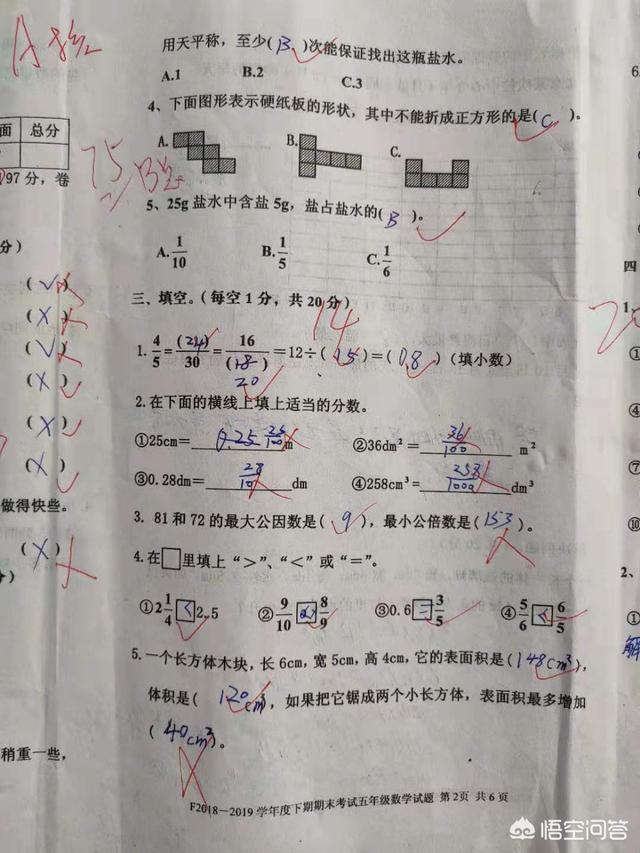 A 卷
用天平称，至少( B )次能保证找出这瓶盐水。
A.1 B.2 C.3
4、下面图形表示硬纸板的形状，其中不能折成正方形的是( C )。
A. B. C.
面 总分
75
97 分，卷
5、25g 盐水中含盐 5g，盐占盐水的( B )。
A.1/10 B.1/5 C.1/6
三、填空。（每空 1 分，共 20 分）
14
1. 4/5=(24)/30=16/(18)=12÷(15)=(0.8)（填小数）
20
2.在下面的横线上填上适当的分数。
①25cm= 0.25 25/100 m ②36dm²= 36/100 m²
③0.28dm= 28/10 dm ④258cm³= 258/1000 dm³
3. 81 和 72 的最大公因数是( 9 )，最小公倍数是(153)。
4.在□里填上“>”、“<”或“=”。
①2 1/4 < 2.5 ②9/10 > 8/9 ③0.6 = 3/5 ④5/6 < 6/5
5.一个长方体木块，长 6cm，宽 5cm，高 4cm，它的表面积是(148cm²)，
体积是( 120cm³ )，如果把它锯成两个小长方体，表面积最多增加
( 40cm² )。
F2018－2019 学年度下期期末考试五年级数学试题 第 2页 共 6 页
分）
(√)
(×)
(√)
(×)
(×)
(×)
做得快些。
(×)
分）
稍重一些，
四
1、
①
④
⑦
⑩
2、
①
解
悟空问答